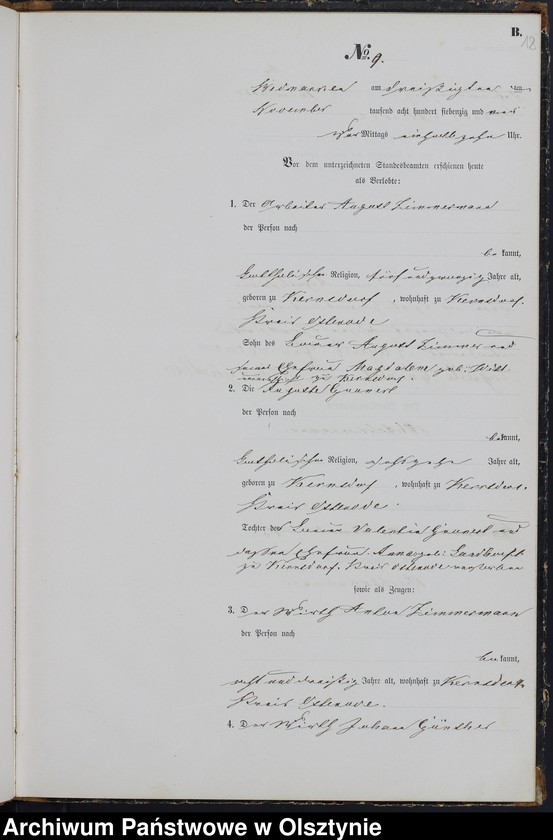 B.
18
No. 9.
am dreißigten ten
November tausend acht hundert siebenzig und vier
Vor Mittags ein halb zehn Uhr.
Vor dem unterzeichneten Standesbeamten erschienen heute
als Verlobte:
1. Der Arbeiter August Zimmermann
der Person nach
be kannt,
katholischer Religion, fünf und zwanzig Jahre alt,
geboren zu Kernsdorf, wohnhaft zu Kernsdorf.
Kreis Osterode
Sohn des Bauer August Zimmer und
seiner Ehefrau Magdalene geb.
zu Kernsdorf.
2. Die Auguste
der Person nach
bekannt,
katholischer Religion, Jahre alt,
geboren zu Kernsdorf, wohnhaft zu Kernsdorf.
Kreis Osterode.
Tochter des Bauer Valentin und
dessen Ehefrau Anna geb.
zu Kernsdorf. Kreis Osterode
sowie als Zeugen:
3. Der Wirth Anton Zimmermann
der Person nach
be kannt,
acht und dreißig Jahre alt, wohnhaft zu Kernsdorf
Kreis Osterode.
4. Der Wirth Johann Günther
Archiwum Państwowe w Olsztynie